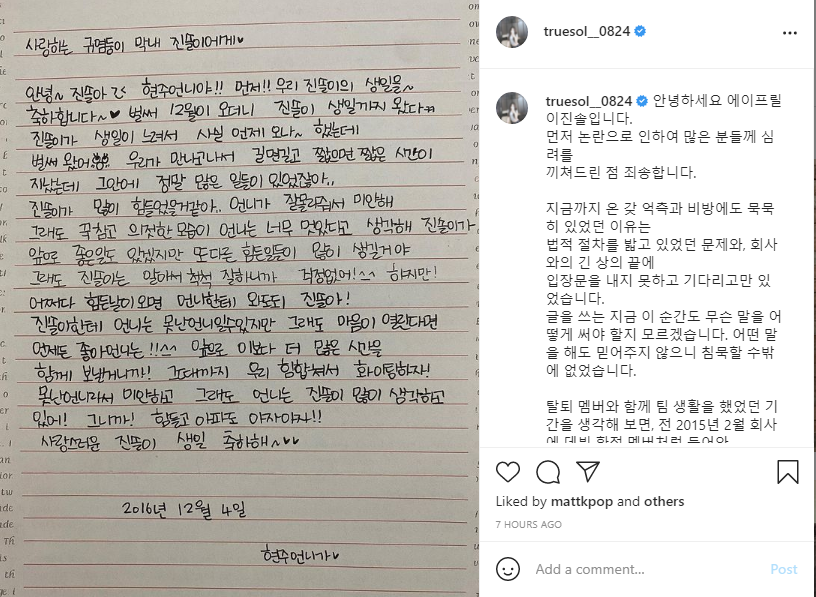 사랑하는 귀염둥이 막내 진똘이에게♥
안녕~ 진똘아 현주언니야!! 먼저!! 우리 진똘이의 생일을~
축하합니다~♥ 벌써 12월이 오더니 진똘이 생일까지 왔다ㅠㅠ
진똘이가 생일이 느려서 사실 언제 오나~ 했는데
벌써 왔어 우리가 만나고나서 길면길고 짧으면 짧은 시간이
지났는데 그안에 정말 많은 일들이 있었잖아..
진똘이가 많이 힘들었을거같아.. 언니가 잘몰라줘서 미안해
그래도 꾹참고 의젓한 모습이 언니는 너무 멋있다고 생각해 진똘이가
앞으로 좋은일도 있겠지만 또다른 힘든일들이 많이 생길거야
그래도 진똘이는 알아서 척척 잘하니까 걱정없어!^^ 하지만!
어쩌다 힘든날이 오면 언니한테 와도돼 진똘아!
진똘이한테 언니는 못난언니일수있지만 그래도 마음이 열린다면
언제든 좋아언니는!!^^ 앞으로 이보다 더 많은 시간을
함께 보낼거니까! 그때까지 우리 힘합쳐서 화이팅하자!
못난언니라서 미안하고 그래도 언니는 진똘이 많이 생각하고
있어! 그니까! 힘들고 아파도 야자야자!!
사랑스러운 진똘이 생일 축하해~♥♥
2016년 12월 4일
현주언니가♥
truesol__0824
truesol__0824 안녕하세요 에이프릴
이진솔입니다.
먼저 논란으로 인하여 많은 분들께 심
려를
끼쳐드린 점 죄송합니다.
지금까지 온 갖 억측과 비방에도 묵묵
히 있었던 이유는
법적 절차를 밟고 있었던 문제와, 회사
와의 긴 상의 끝에
입장문을 내지 못하고 기다리고만 있
었습니다.
글을 쓰는 지금 이 순간도 무슨 말을 어
떻게 써야 할지 모르겠습니다. 어떤 말
을 해도 믿어주지 않으니 침묵할 수밖
에 없었습니다.
탈퇴 멤버와 함께 팀 생활을 했었던 기
간을 생각해 보면, 전 2015년 2월 회사
에 데뷔 확정 멤버처럼 들어와
Liked by mattkpop and others
7 HOURS AGO
Add a comment...
Post